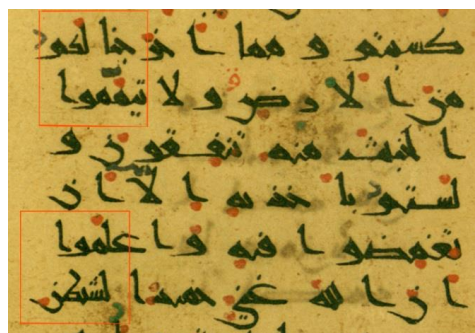 كسبتم ومما اخرجنا لكم
من الارض ولا تيمموا
الخبيث منه تنفقون و
لستم باخذيه الا ان
تغمضوا فيه واعلموا
ان الله غني حميد الشيطن